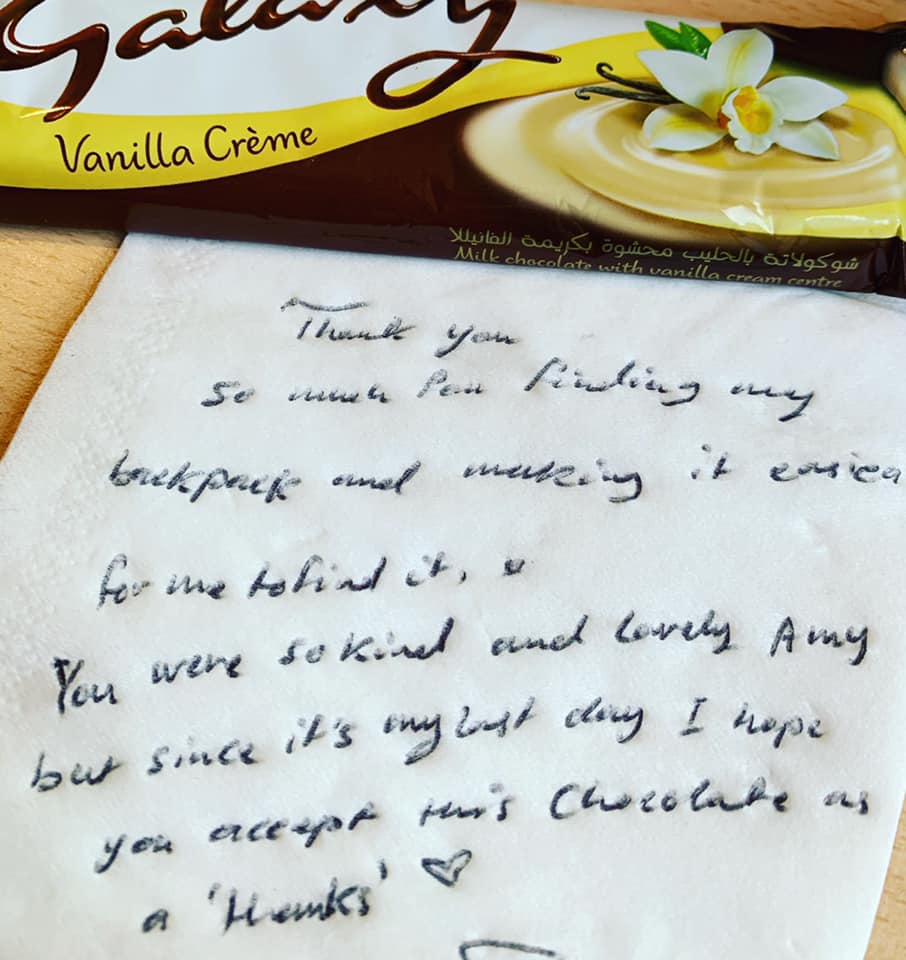 Galaxy
Vanilla Crème
شوكولاتة بالحليب محشوة بكريمة الفانيللا
Milk chocolate with vanilla cream centre
Thank you
so much for finding my
backpack and making it easier
for me to find it.
You were so kind and lovely Amy
but since it's my last day I hope
you accept this Chocolate as
a 'thanks' ♡